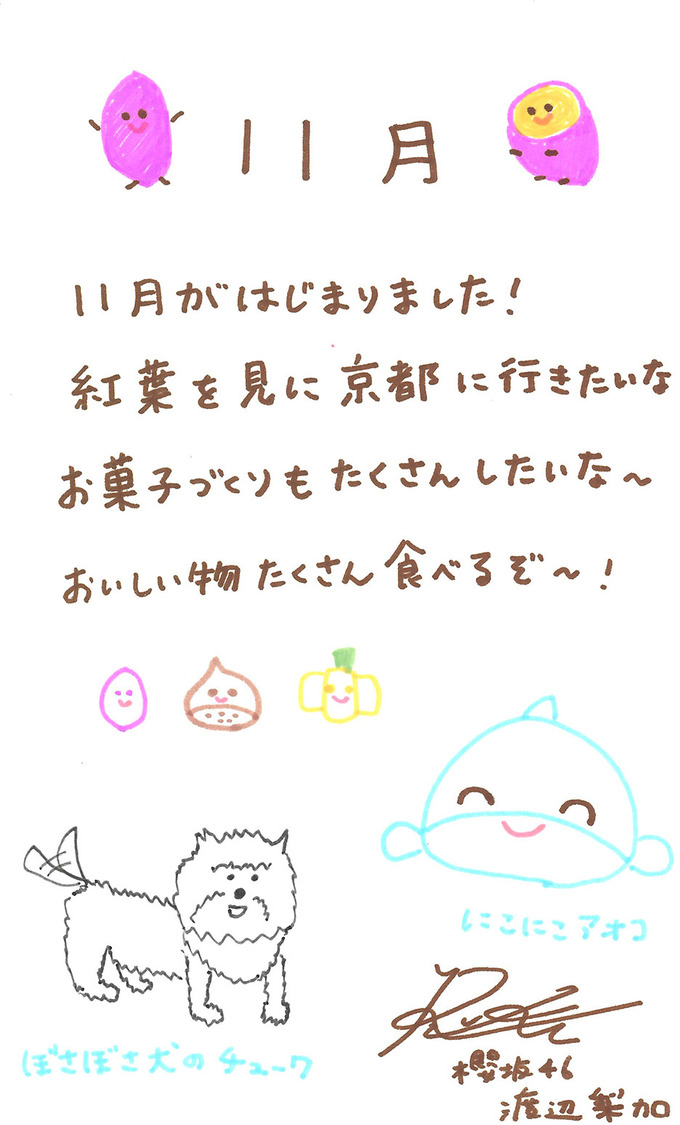 11月
11月がはじまりました！
紅葉を見に京都に行きたいな
お菓子づくりもたくさんしたいな～
おいしい物たくさん食べるぞ～！
にこにこアオコ
ぼさぼさ犬のチューワ
櫻坂46
渡辺梨加